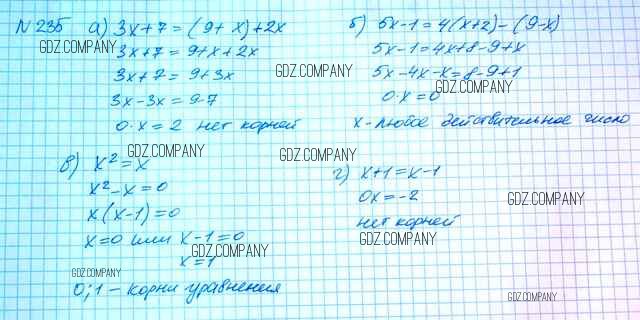 N 235 а) 3x+7 = (9+x)+2x
3x+7 = 9+x+2x
3x+7 = 9+3x
3x-3x = 9-7
0·x = 2 нет корней
б) 5x-1=4(x+2)-(9-x)
5x-1=4x+8-9+x
5x-4x-x=8-9+1
0·x=0
x-любое действительное число
в) x²=x
x²-x=0
x(x-1)=0
x=0 или x-1=0
x=1
0; 1 - корни уравнения
г) x+1=x-1
0x=-2
нет корней
GDZ.COMPANY
GDZ.COMPANY
GDZ.COMPANY
GDZ.COMPANY
GDZ.COMPANY
GDZ.COMPANY
GDZ.COMPANY
GDZ.COMPANY
GDZ.COMPANY
GDZ.COMPANY